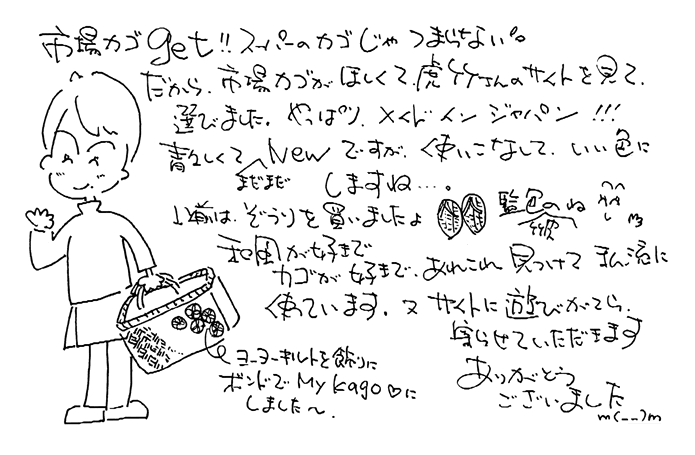 市場カゴget!! スーパーのカゴじゃつまらない。
だから、市場カゴがほしくて、虎竹さんのサイトを見て、
選びました。やっぱり、メイドインジャパン!!!
青々しくてまだまだNewですが、使いこなして、いい色に
しますね…。
以前は、ぞうりを買いましたよ 藍色の鼻緒のね
和風が好きで
カゴが好きで、あれこれ見つけて私流に
使っています。又サイトに遊びがてら、
寄らせていただきます
ありがとう
ございました
m(__)m
ヨーヨーキルトを飾りに
ボンドでMy Kago♡に
しました〜。